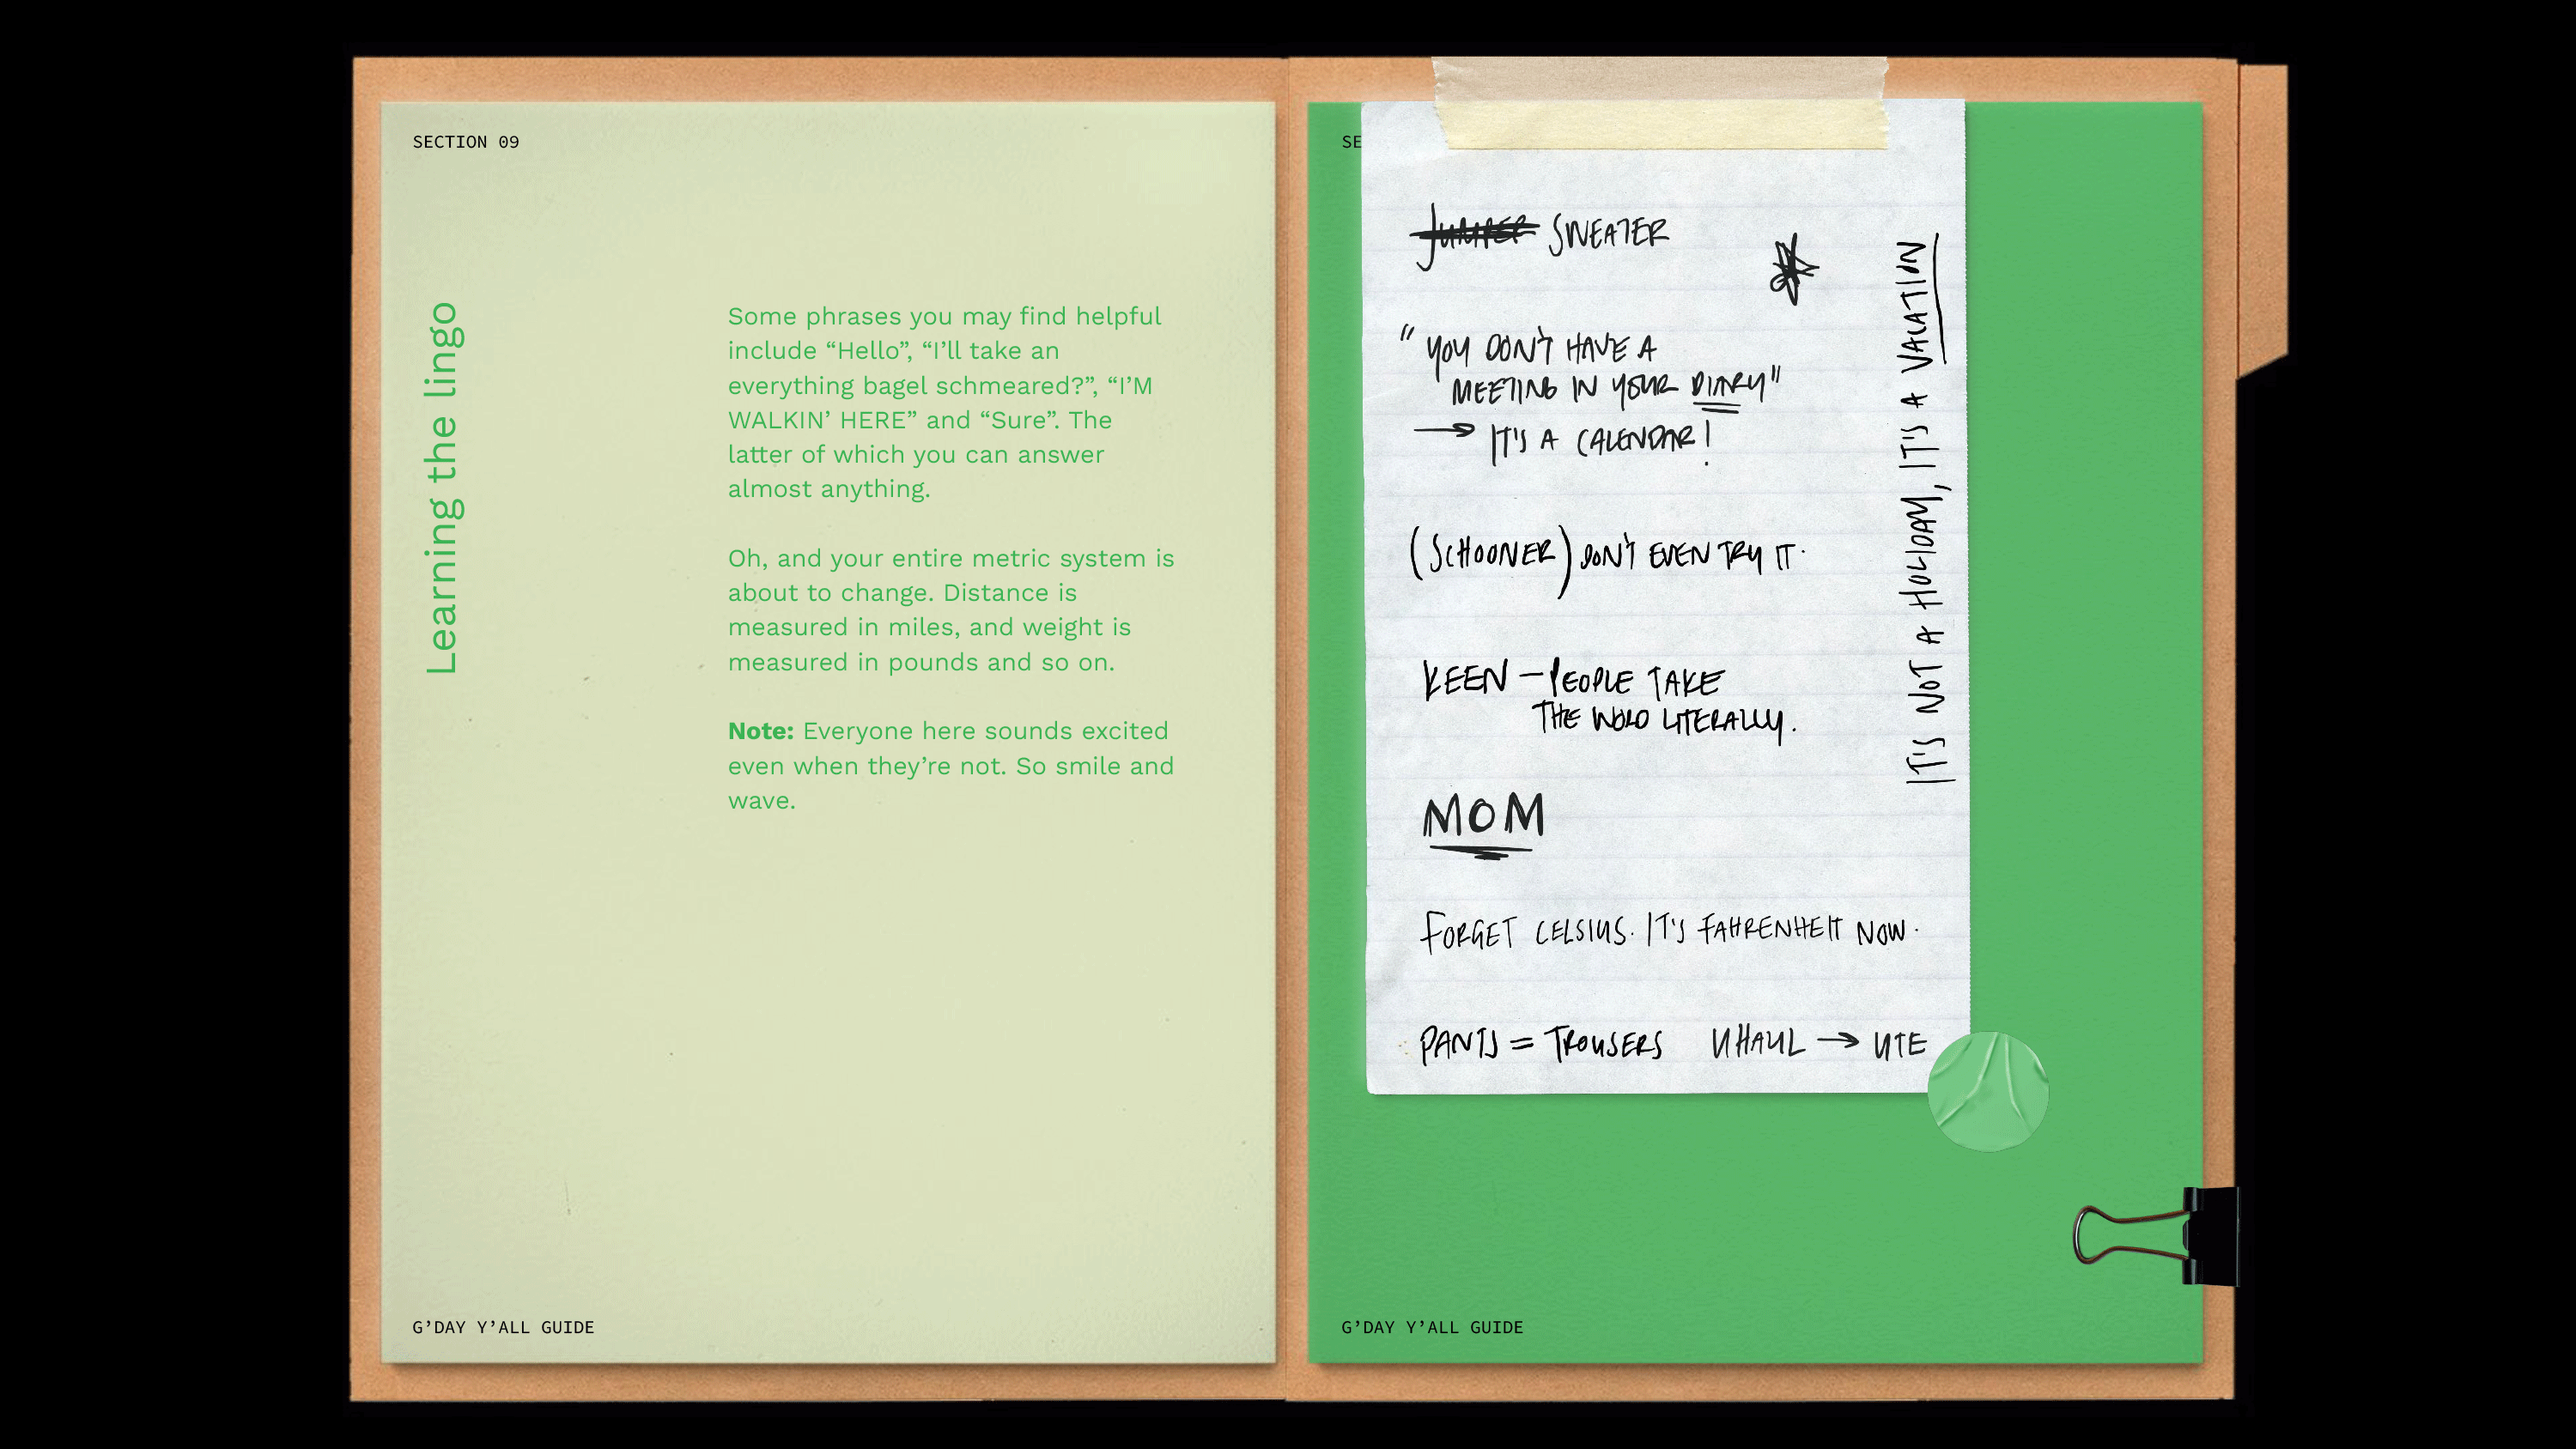 SECTION 09
Learning the lingo
Some phrases you may find helpful
include “Hello”, “I’ll take an
everything bagel schmeared?”, “I’M
WALKIN’ HERE” and “Sure”. The
latter of which you can answer
almost anything.
Oh, and your entire metric system is
about to change. Distance is
measured in miles, and weight is
measured in pounds and so on.
Note: Everyone here sounds excited
even when they’re not. So smile and
wave.
G’DAY Y’ALL GUIDE
SE
JUMPER SWEATER
"YOU DON'T HAVE A
MEETING IN YOUR DIARY"
→ IT'S A CALENDAR!
(SCHOONER) DON'T EVEN TRY IT.
KEEN – PEOPLE TAKE
THE WORD LITERALLY.
MOM
FORGET CELSIUS. IT'S FAHRENHEIT NOW.
PANTS = TROUSERS UHAUL → UTE
IT'S NOT A HOLIDAY, IT'S A VACATION
G’DAY Y’ALL GUIDE